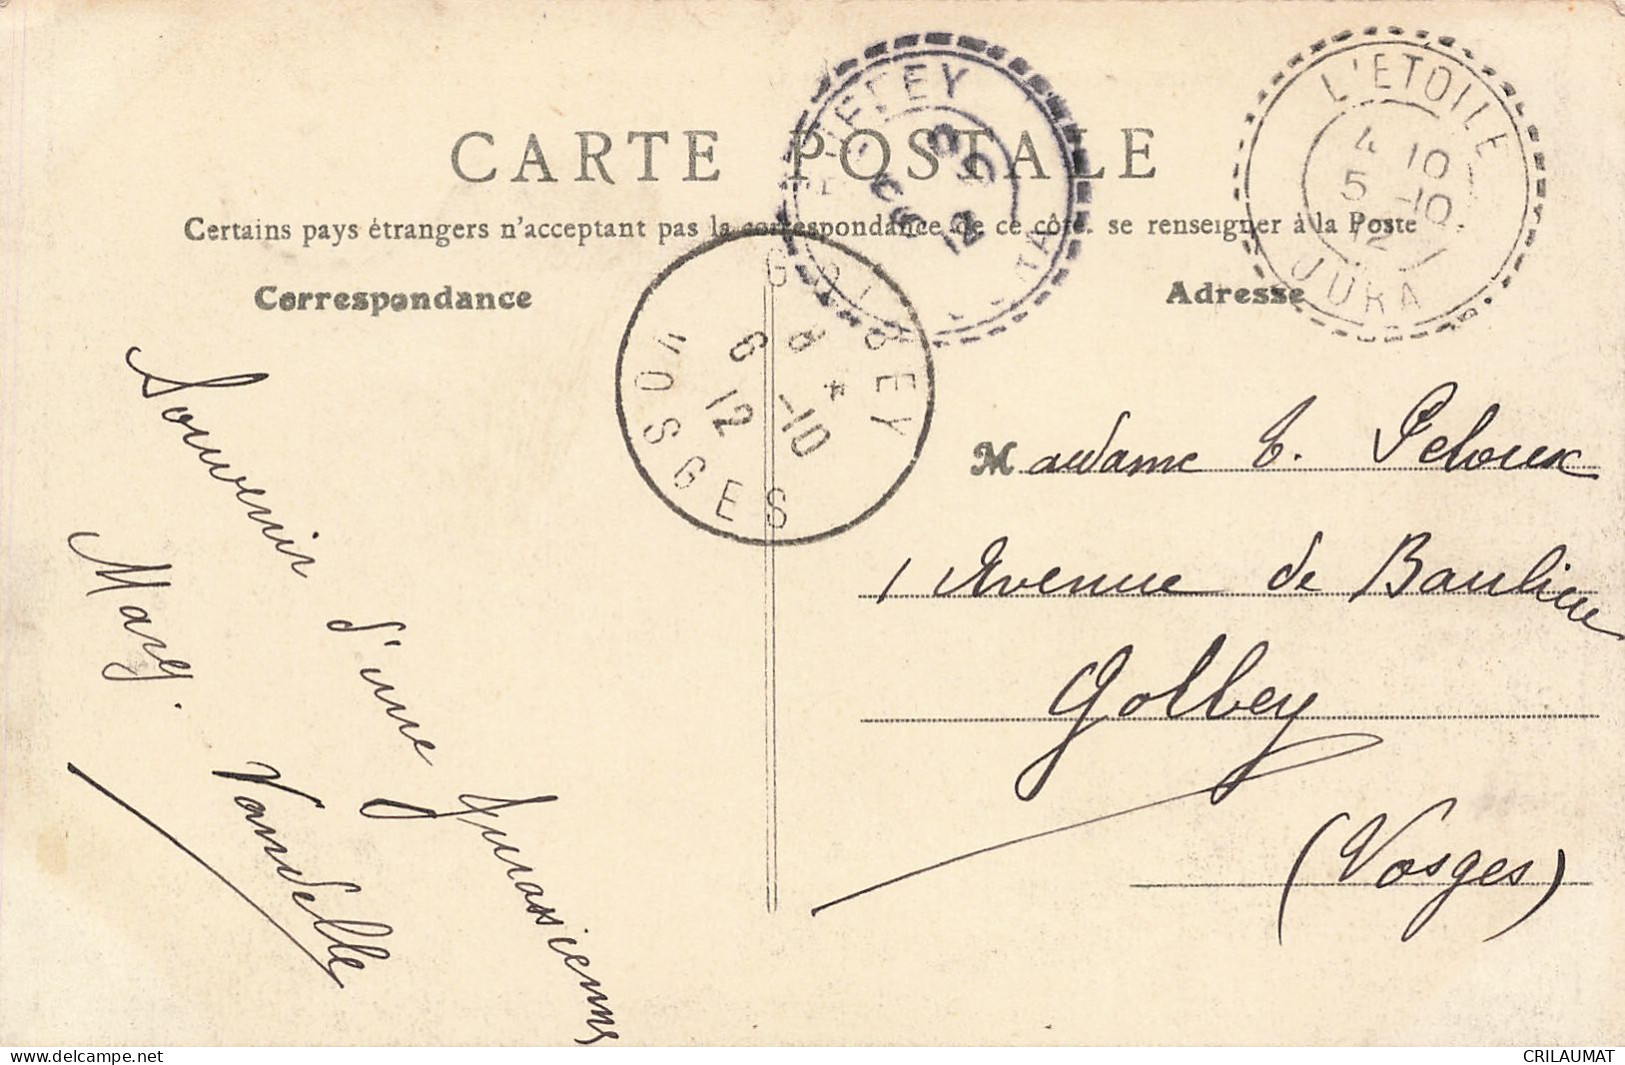 CARTE POSTALE
Certains pays étrangers n'acceptent pas la correspondance de ce côté. se renseigner à la Poste
Correspondance
Adresse
L'ETOILE
4 10
5 -10
12
JURA
GOLBEY
8
6 -10
12
VOSGES
Souvenir d'une Jurassienne
Marg. Vandelle
Madame E. Peloux
1 Avenue de Baulieu
Golbey
(Vosges)
delcampe.net
CRILAUMAT